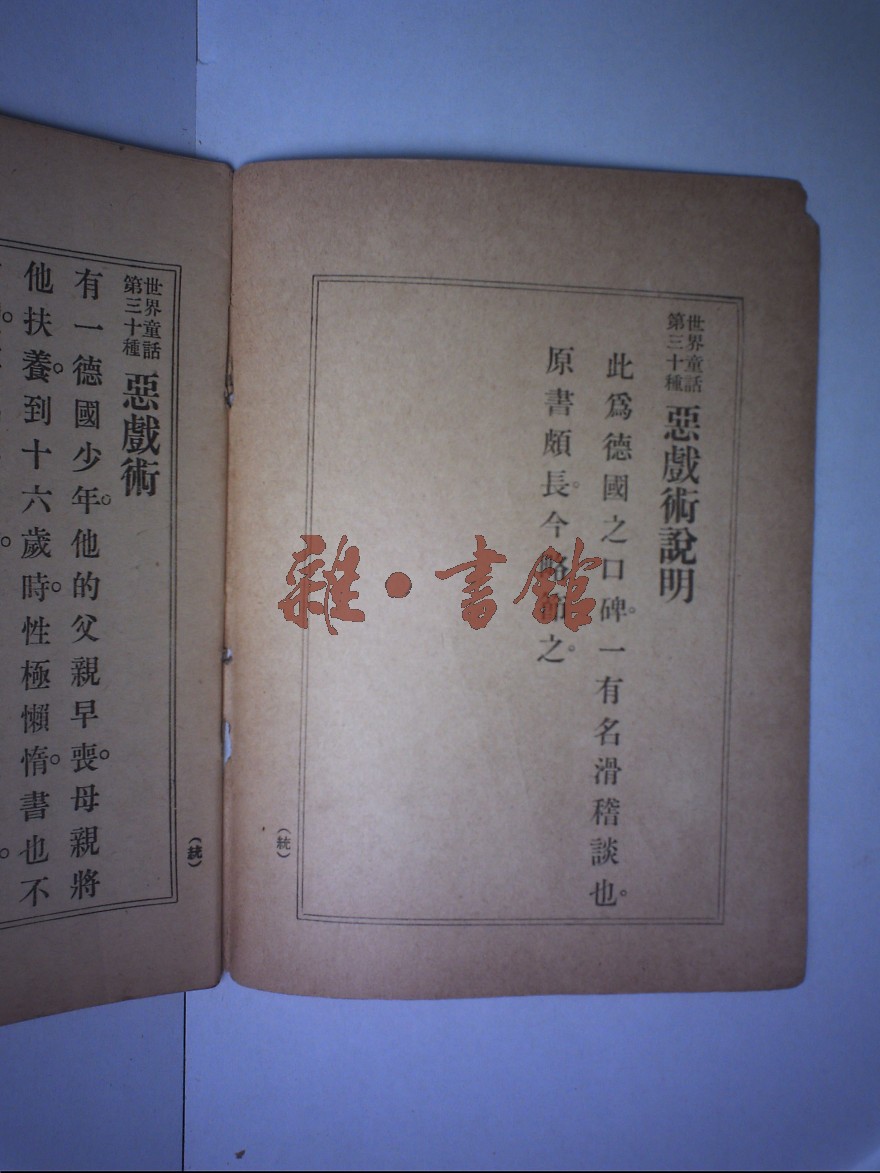 世界童話
第三十種
惡戲術說明
此爲德國之口碑。一有名滑稽談也。
原書頗長。今略節之。
(統)
世界童話
第三十種
惡戲術
有一德國少年。他的父親早喪。母親將
他扶養。到十六歲時。性極懶惰。書也不
(統)
雜·書館